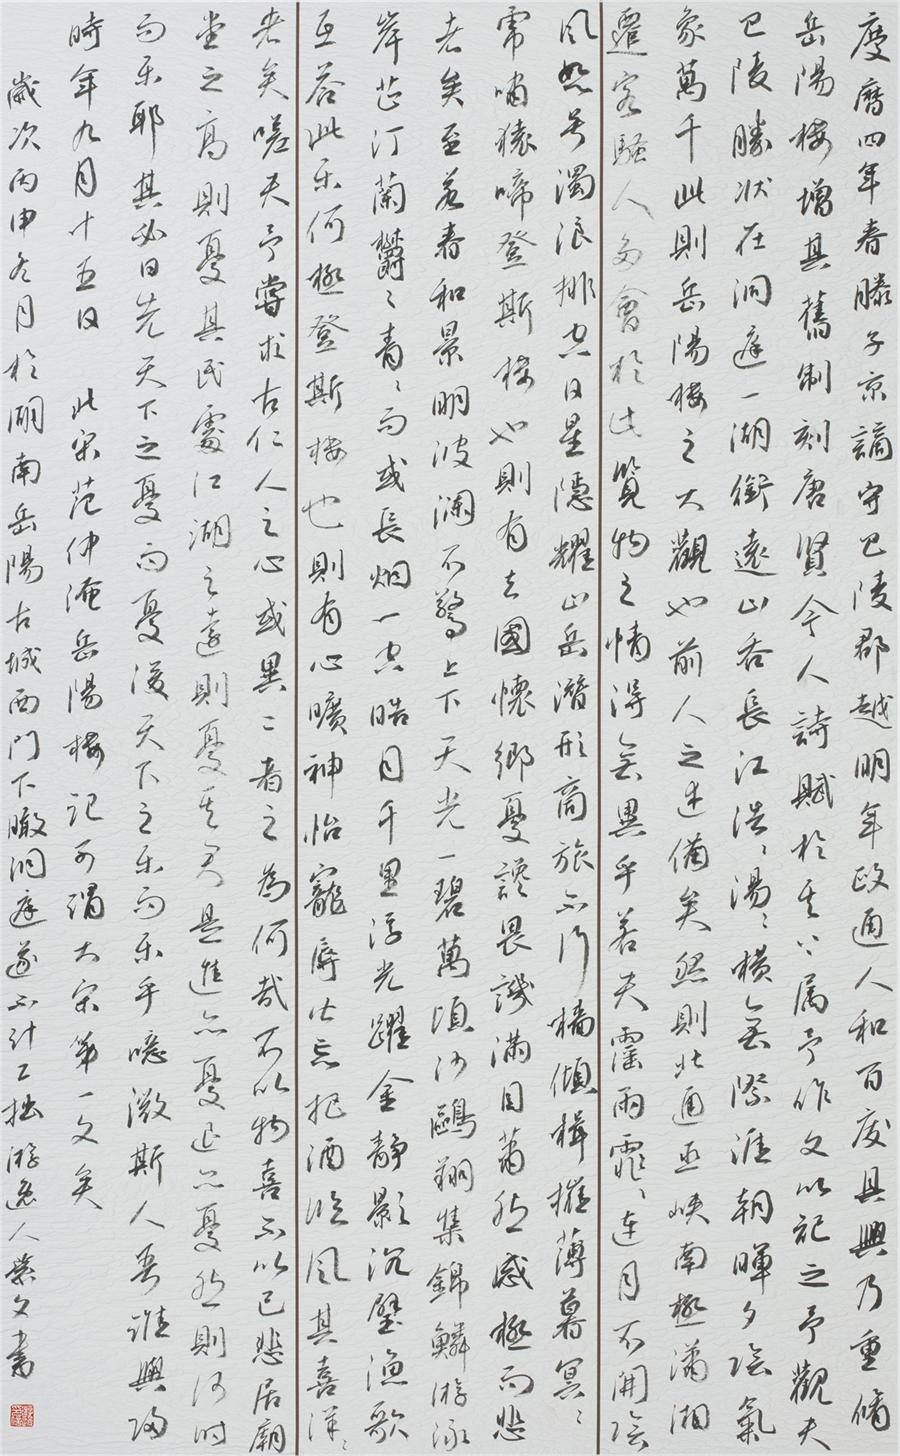 慶曆四年春滕子京謫守巴陵郡越明年政通人和百废具興乃重脩
岳陽樓增其舊制刻唐賢今人詩賦於其上属予作文以記之予觀夫
巴陵勝狀在洞庭一湖銜遠山吞長江浩〻湯〻横無際涯朝暉夕陰氣
象萬千此則岳陽樓之大觀也前人之述備矣然則北通巫峡南極瀟湘
遷客騷人多會於此覽物之情得無異乎若夫霪雨霏〻连月不開陰
風怒号濁浪排空日星隱耀山岳潛形商旅不行檣傾楫摧薄暮冥〻
虎嘯猿啼登斯樓也則有去國懷鄉憂讒畏譏滿目蕭然感極而悲
者矣至若春和景明波瀾不驚上下天光一碧萬頃沙鷗翔集錦鱗游泳
岸芷汀蘭欝〻青〻而或長烟一空皓月千里浮光躍金静影沉璧漁歌
互答此乐何極登斯樓也則有心曠神怡寵辱皆忘把酒临風其喜洋〻
者矣嗟夫予嘗求古仁人之心或異二者之為何哉不以物喜不以己悲居廟
堂之高則憂其民處江湖之遠則憂其君是進亦憂退亦憂然則何时
而乐耶其必曰先天下之憂而憂後天下之乐而乐乎噫微斯人吾誰與归
時年九月十五日 此宋范仲淹岳陽樓記可謂大宋第一文矣
歲次丙申冬月於湖南岳陽古城西門下瞰洞庭遂不计工拙游逸人業文書